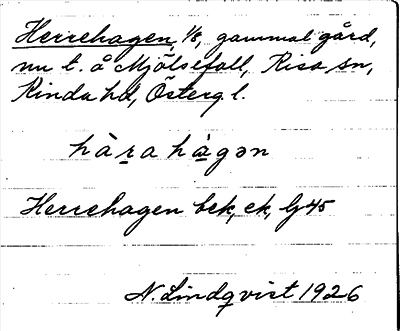 Herrehagen, 1/8, gammal gård,
nu t. å Mjölsefall, Risa sn,
Kinda hd, Österg l.
hàra hàgən
Herrehagen bek, ek, Gj 45
N. Lindqvist 1926